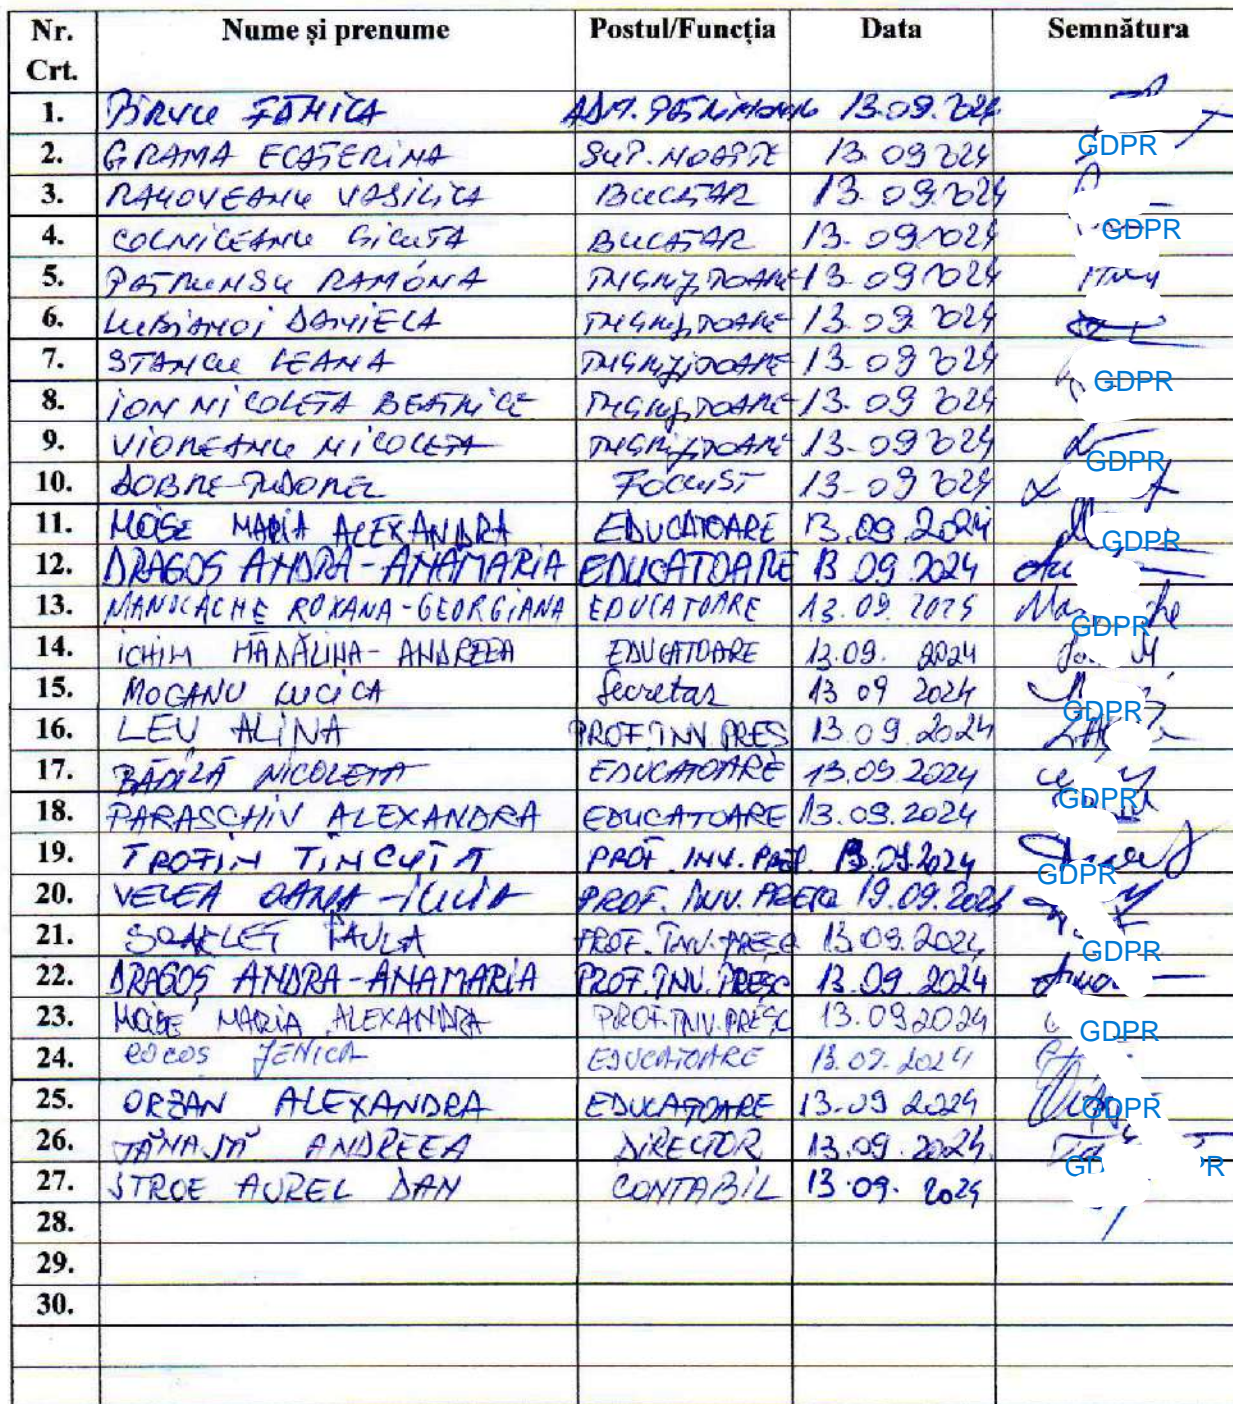 Nr. Crt. Nume și prenume Postul/Funcția Data Semnătura
1. PÎRVU FĂNICA ADM. PATRIMONIU 13.09.2024
2. GRAMA ECATERINA SUP. NOAPTE 13.09 2024 GDPR
3. RAHOVEANU VASILICA BUCĂTAR 13.09.2024
4. COLNICEANU GICUȚA BUCĂTAR 13.09.2024 GDPR
5. PĂTRUNSU RAMONA ÎNGRIJITOARE 13.09 2024
6. DANIELA ÎNGRIJITOARE 13.09 2024
7. STANCU LEANA ÎNGRIJITOARE 13.09 2024 GDPR
8. ION NICOLETA BEATRICE ÎNGRIJITOARE 13.09 2024
9. VIOREANU NICOLETA ÎNGRIJITOARE 13.09 2024 GDPR
10. DOBRE TUDOREL FOCHIST 13-09 2024
11. MOISE MARIA ALEXANDRA EDUCATOARE 13.09.2024 GDPR
12. DRAGOȘ ANDRA-ANAMARIA EDUCATOARE 13.09.2024
13. MANOLACHE ROXANA-GEORGIANA EDUCATOARE 13.09. 2024 GDPR
14. ICHIM MĂDĂLINA-ANDREEA EDUCATOARE 13.09. 2024
15. MOCANU LUCICA Secretar 13 09 2024 GDPR
16. LEU ALINA PROF. ÎNV. PREȘ 13.09.2024
17. BĂDILĂ NICOLETA EDUCATOARE 13.09.2024 GDPR
18. PARASCHIV ALEXANDRA EDUCATOARE 13.09.2024
19. TROFIN TINCUȚA PROF. ÎNV. 13.09.2024 GDPR
20. VELEA OANA-IULIA PROF. ÎNV. 19.09.2024
21. PAULA PROF. ÎNV. PREȘC 13.09.2024 GDPR
22. DRAGOȘ ANDRA-ANAMARIA PROF. ÎNV. PREȘC 13.09.2024
23. MOISE MARIA ALEXANDRA PROF. ÎNV. PREȘC 13.09 2024 GDPR
24. COCOȘ JENICA EDUCATOARE 13.09.2024
25. ORZAN ALEXANDRA EDUCATOARE 13.09 2024 GDPR
26. TĂNASĂ ANDREEA DIRECTOR 13.09.2024
27. STROE AUREL DAN CONTABIL 13.09. 2024 GDPR
28.
29.
30.